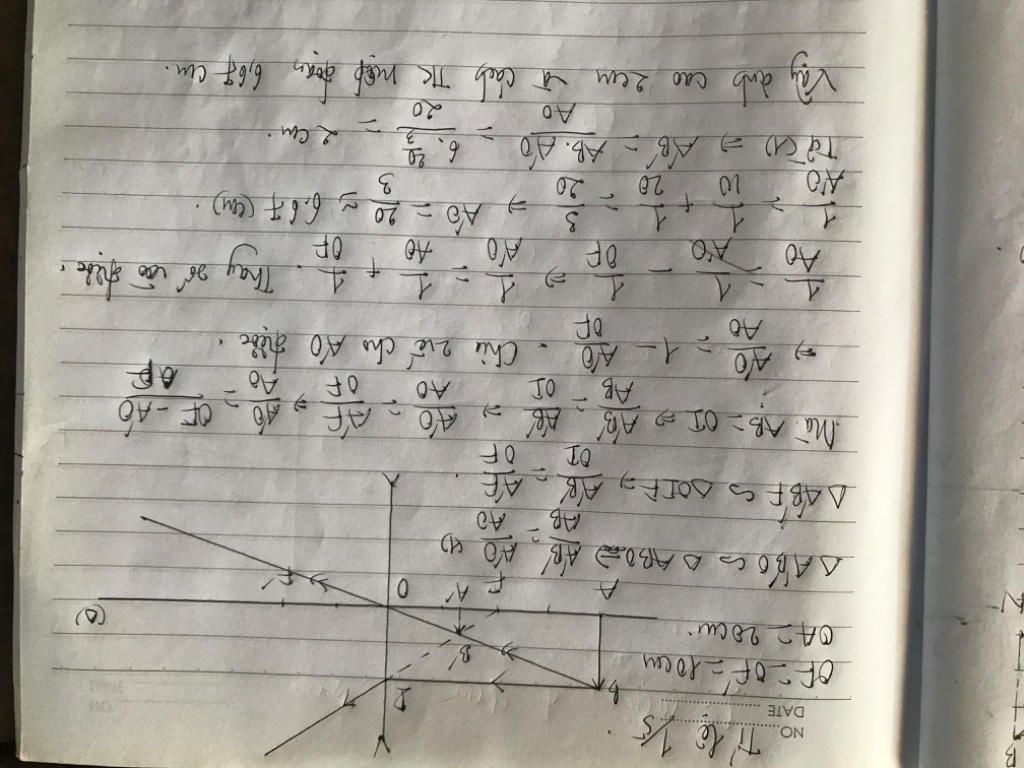 NO.
DATE
Tỉ lệ 1/5
OF = OF' = 10cm
OA = 20cm.
B
I
B'
(Δ)
A
F
A'
O
F'
Δ A'B'O ∽ Δ ABO ⇒ A'B'/AB = A'O/AO (1)
Δ A'B'F ∽ Δ OIF ⇒ A'B'/OI = A'F/OF.
Mà: AB = OI ⇒ A'B'/AB = A'B'/OI ⇒ A'O/AO = A'F/OF ⇒ A'O/AO = OF - A'O/OF
⇒ A'O/AO = 1 - A'O/OF. Chia 2 vế cho A'O được.
1/AO = 1/A'O - 1/OF ⇒ 1/A'O = 1/AO + 1/OF. Thay số vào được.
1/A'O = 1/10 + 1/20 = 3/20 ⇒ A'O = 20/3 ≈ 6,67 (cm).
Từ (1) ⇒ A'B' = AB.A'O/AO = 6.20/3/20 = 2 cm.
Vậy ảnh cao 2cm và cách TK một đoạn 6,67 cm.
NO
DATE
B